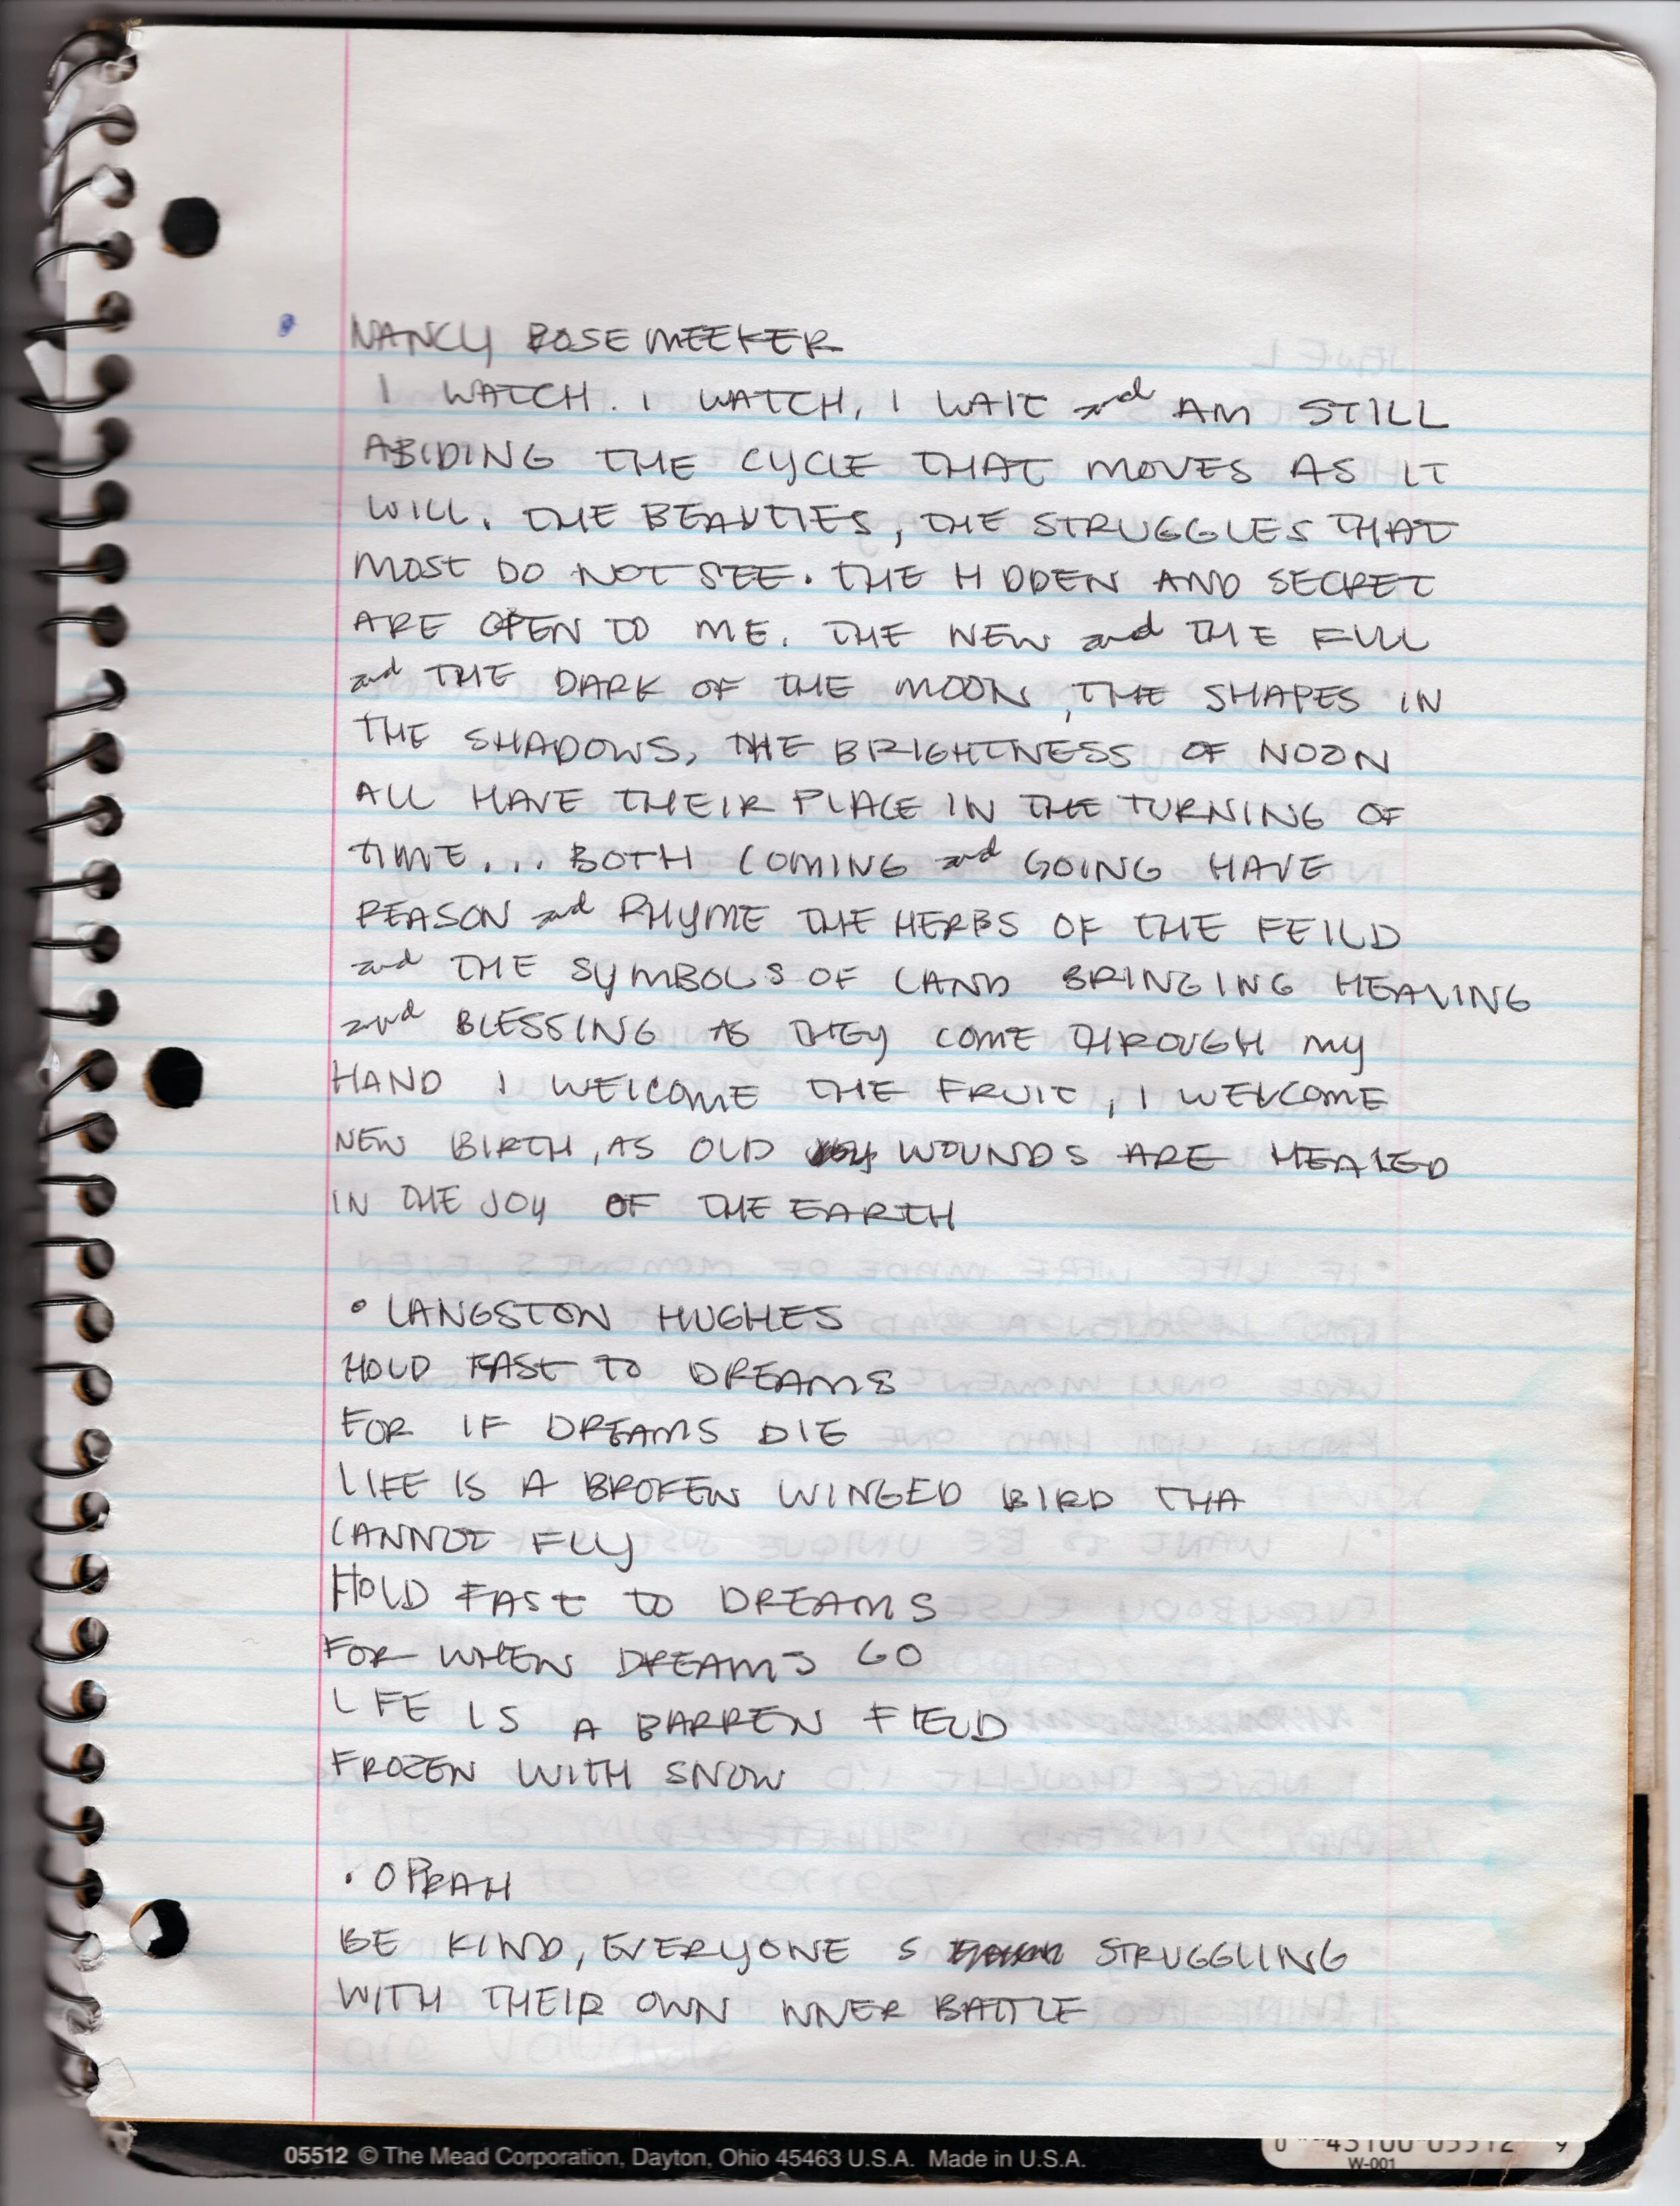 NANCY ROSE MEEKER
I WATCH. I WATCH, I WAIT and AM STILL
ABIDING THE CYCLE THAT MOVES AS IT
WILL. THE BEAUTIES, THE STRUGGLES THAT
MOST DO NOT SEE. THE H DDEN AND SECRET
ARE OPEN TO ME. THE NEW and THE FULL
and THE DARK OF THE MOON, THE SHAPES IN
THE SHADOWS, THE BRIGHTNESS OF NOON
ALL HAVE THEIR PLACE IN THE TURNING OF
TIME... BOTH COMING and GOING HAVE
REASON and RHYME THE HERBS OF THE FEILD
and THE SYMBOLS OF LAND BRINGING HEALING
and BLESSING AS THEY COME THROUGH MY
HAND I WELCOME THE FRUIT, I WELCOME
NEW BIRTH, AS OLD WOUNDS ARE HEALED
IN THE JOY OF THE EARTH
• LANGSTON HUGHES
HOLD FAST TO DREAMS
FOR IF DREAMS DIE
LIFE IS A BROKEN WINGED BIRD THA
CANNOT FLY
HOLD FAST TO DREAMS
FOR WHEN DREAMS GO
L FE IS A BARREN FIELD
FROZEN WITH SNOW
• OPRAH
BE KIND, EVERYONE S STRUGGLING
WITH THEIR OWN INNER BATTLE
05512 © The Mead Corporation, Dayton, Ohio 45463 U.S.A. Made in U.S.A.
W-001